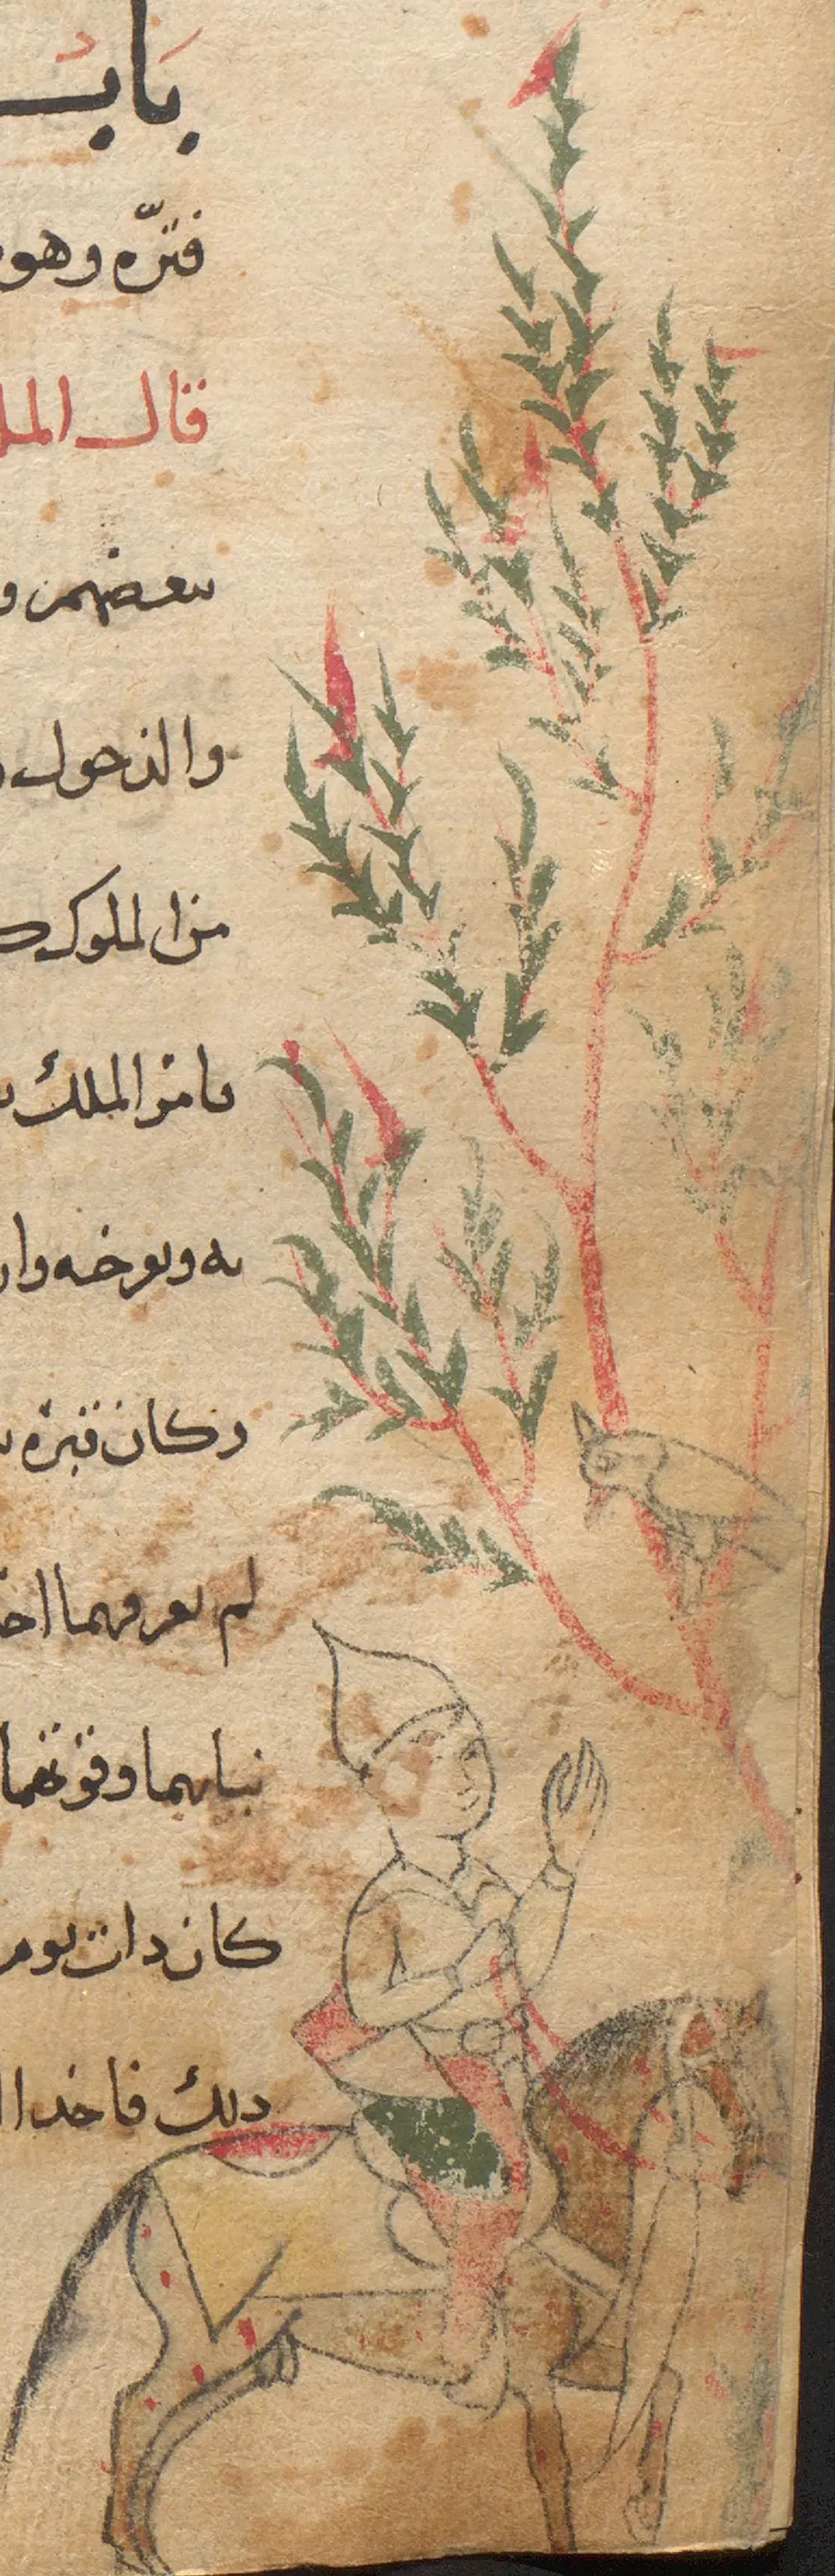 باب
قترّه وهو
قال الملك
بعضهم و
والذحول
من الملوك
يامن الملك
به وبوخه وا
وكان قبرة
لم يعرفهما اخ
نباتهما وقوتهما
كان ذات يوم
ذلك فاخذ ا